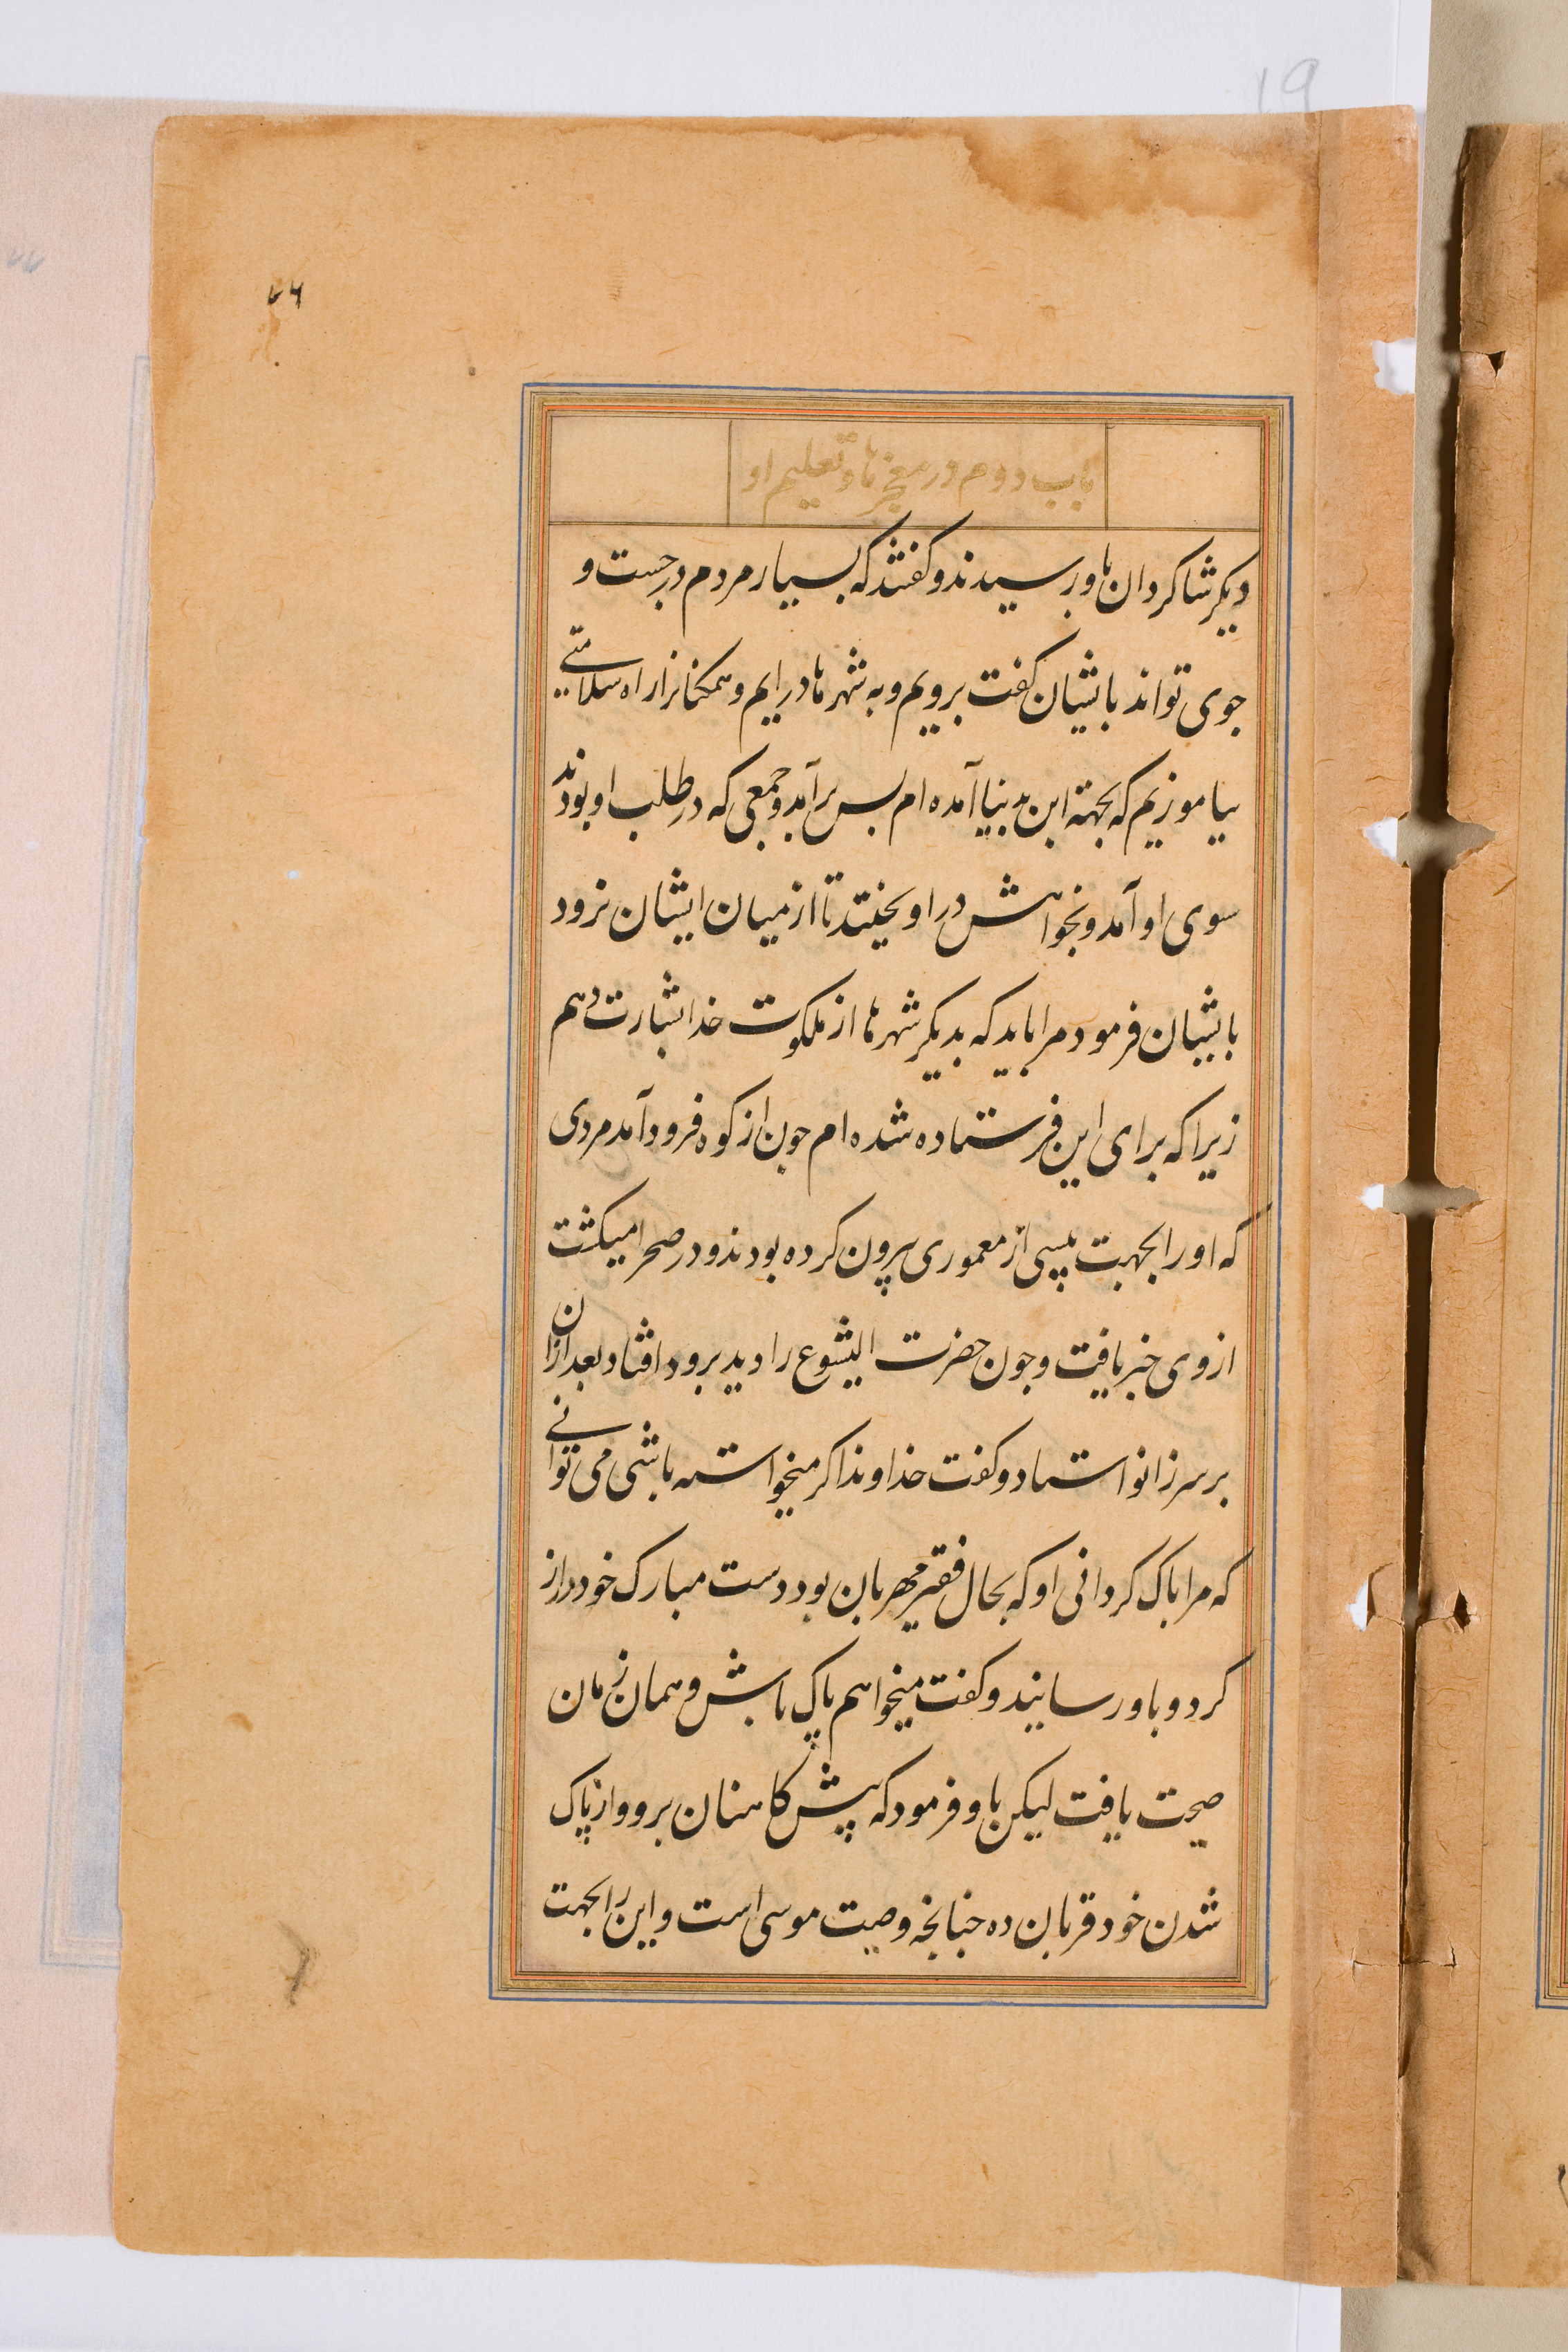 19
۷۶
باب دوم در معجزها و تعلیم او
دیکر شاکردان باو رسیدند و کفتند که بسیار مردم در جست و
جوی تواند بایشان کفت برویم و به شهرها درایم و همکنانرا راه سلامتی
بیاموزیم که بجهة این بدنیا آمده ام بس برآمد و جمعی که در طلب او بودند
سوی او آمد و بخواهش در اویختند تا از میان ایشان نرود
بایشان فرمود مرا باید که بدیکر شهرها از ملکوت خدا بشارت دهم
زیرا که برای این فرستاده شده ام جون از کوه فرود آمد مردی
که او را بجهت پیسی از معموری بیرون کرده بودند و در صحرا میکشت
از وی خبر یافت و جون حضرت ایشوع را دید برو در افتاد بعد ازان
بر سر زانو استاد و کفت خداوندا کر میخواسته باشی می توانی
که مرا باک کردانی او که بحال فقیر مهربان بود دست مبارک خود دراز
کرد و باو رسانید و کفت میخواهم پاک باش و همان زمان
صحت یافت لیکن باو فرمود که پیش کاهنان برو و از پاک
شدن خود قربان ده جنانجه وصیت موسی است و این را بجهت